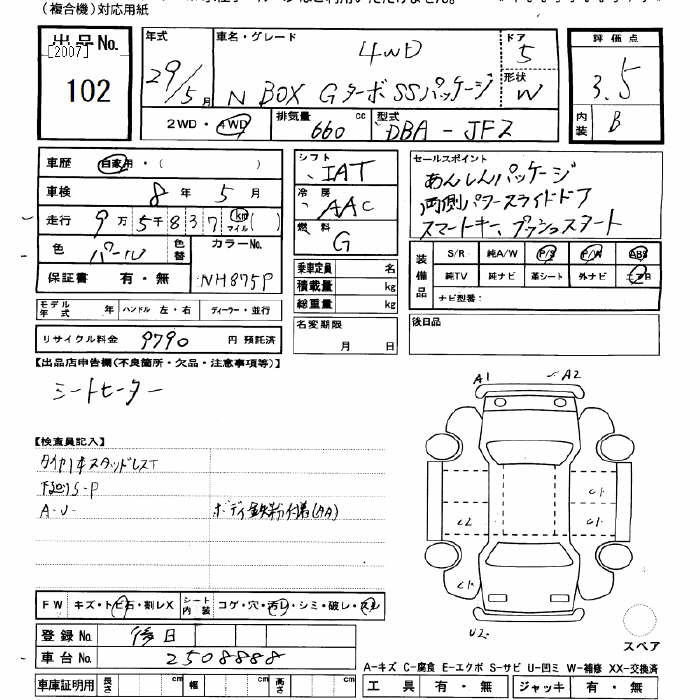 (複合機)対応用紙
出品No.
[2007]
102
年式
29/5月
車名・グレード
4WD
N BOX GターボSSパッケージ
ドア
5
形状
W
評価点
3.5
内装
B
2WD・4WD
排気量
660
cc
型式
DBA-JF2
車歴
自家用・( )
車検
8年5月
走行
9万5千837
km
マイル
( )
色
パール
色替
カラーNo.
NH875P
保証書 有・無
シフト
IAT
冷房
AAC
燃料
G
セールスポイント
あんしんパッケージ
両側パワースライドドア
スマートキー、プッシュスタート
装備品
S/R 純A/W P/S P/W ABS
純TV 純ナビ 革シート 外ナビ エアB
ナビ型番:
乗車定員 名
積載量 kg
総重量 kg
モデル年式 年 ハンドル 左・右 ディーラー・並行
リサイクル料金 9790 円 預託済
名変期限
月 日
後日品
【出品店申告欄(不良箇所・欠品・注意事項等)】
シートヒーター
【検査員記入】
タイヤ1本スタッドレスT
下廻りS-P
A-U-
ボディ鉄粉付着(大A)
A1
A2
U2
スペア
FW キズ・トビ石・割レX
シート内装
コゲ・穴・汚レ・シミ・破レ・スレ
登録No. 後日
車台No. 2508888
車庫証明用 長さ cm 幅 cm 高さ cm
A-キズ C-腐食 E-エクボ S-サビ U-凹ミ W-補修 XX-交換済
工具 有・無 ジャッキ 有・無